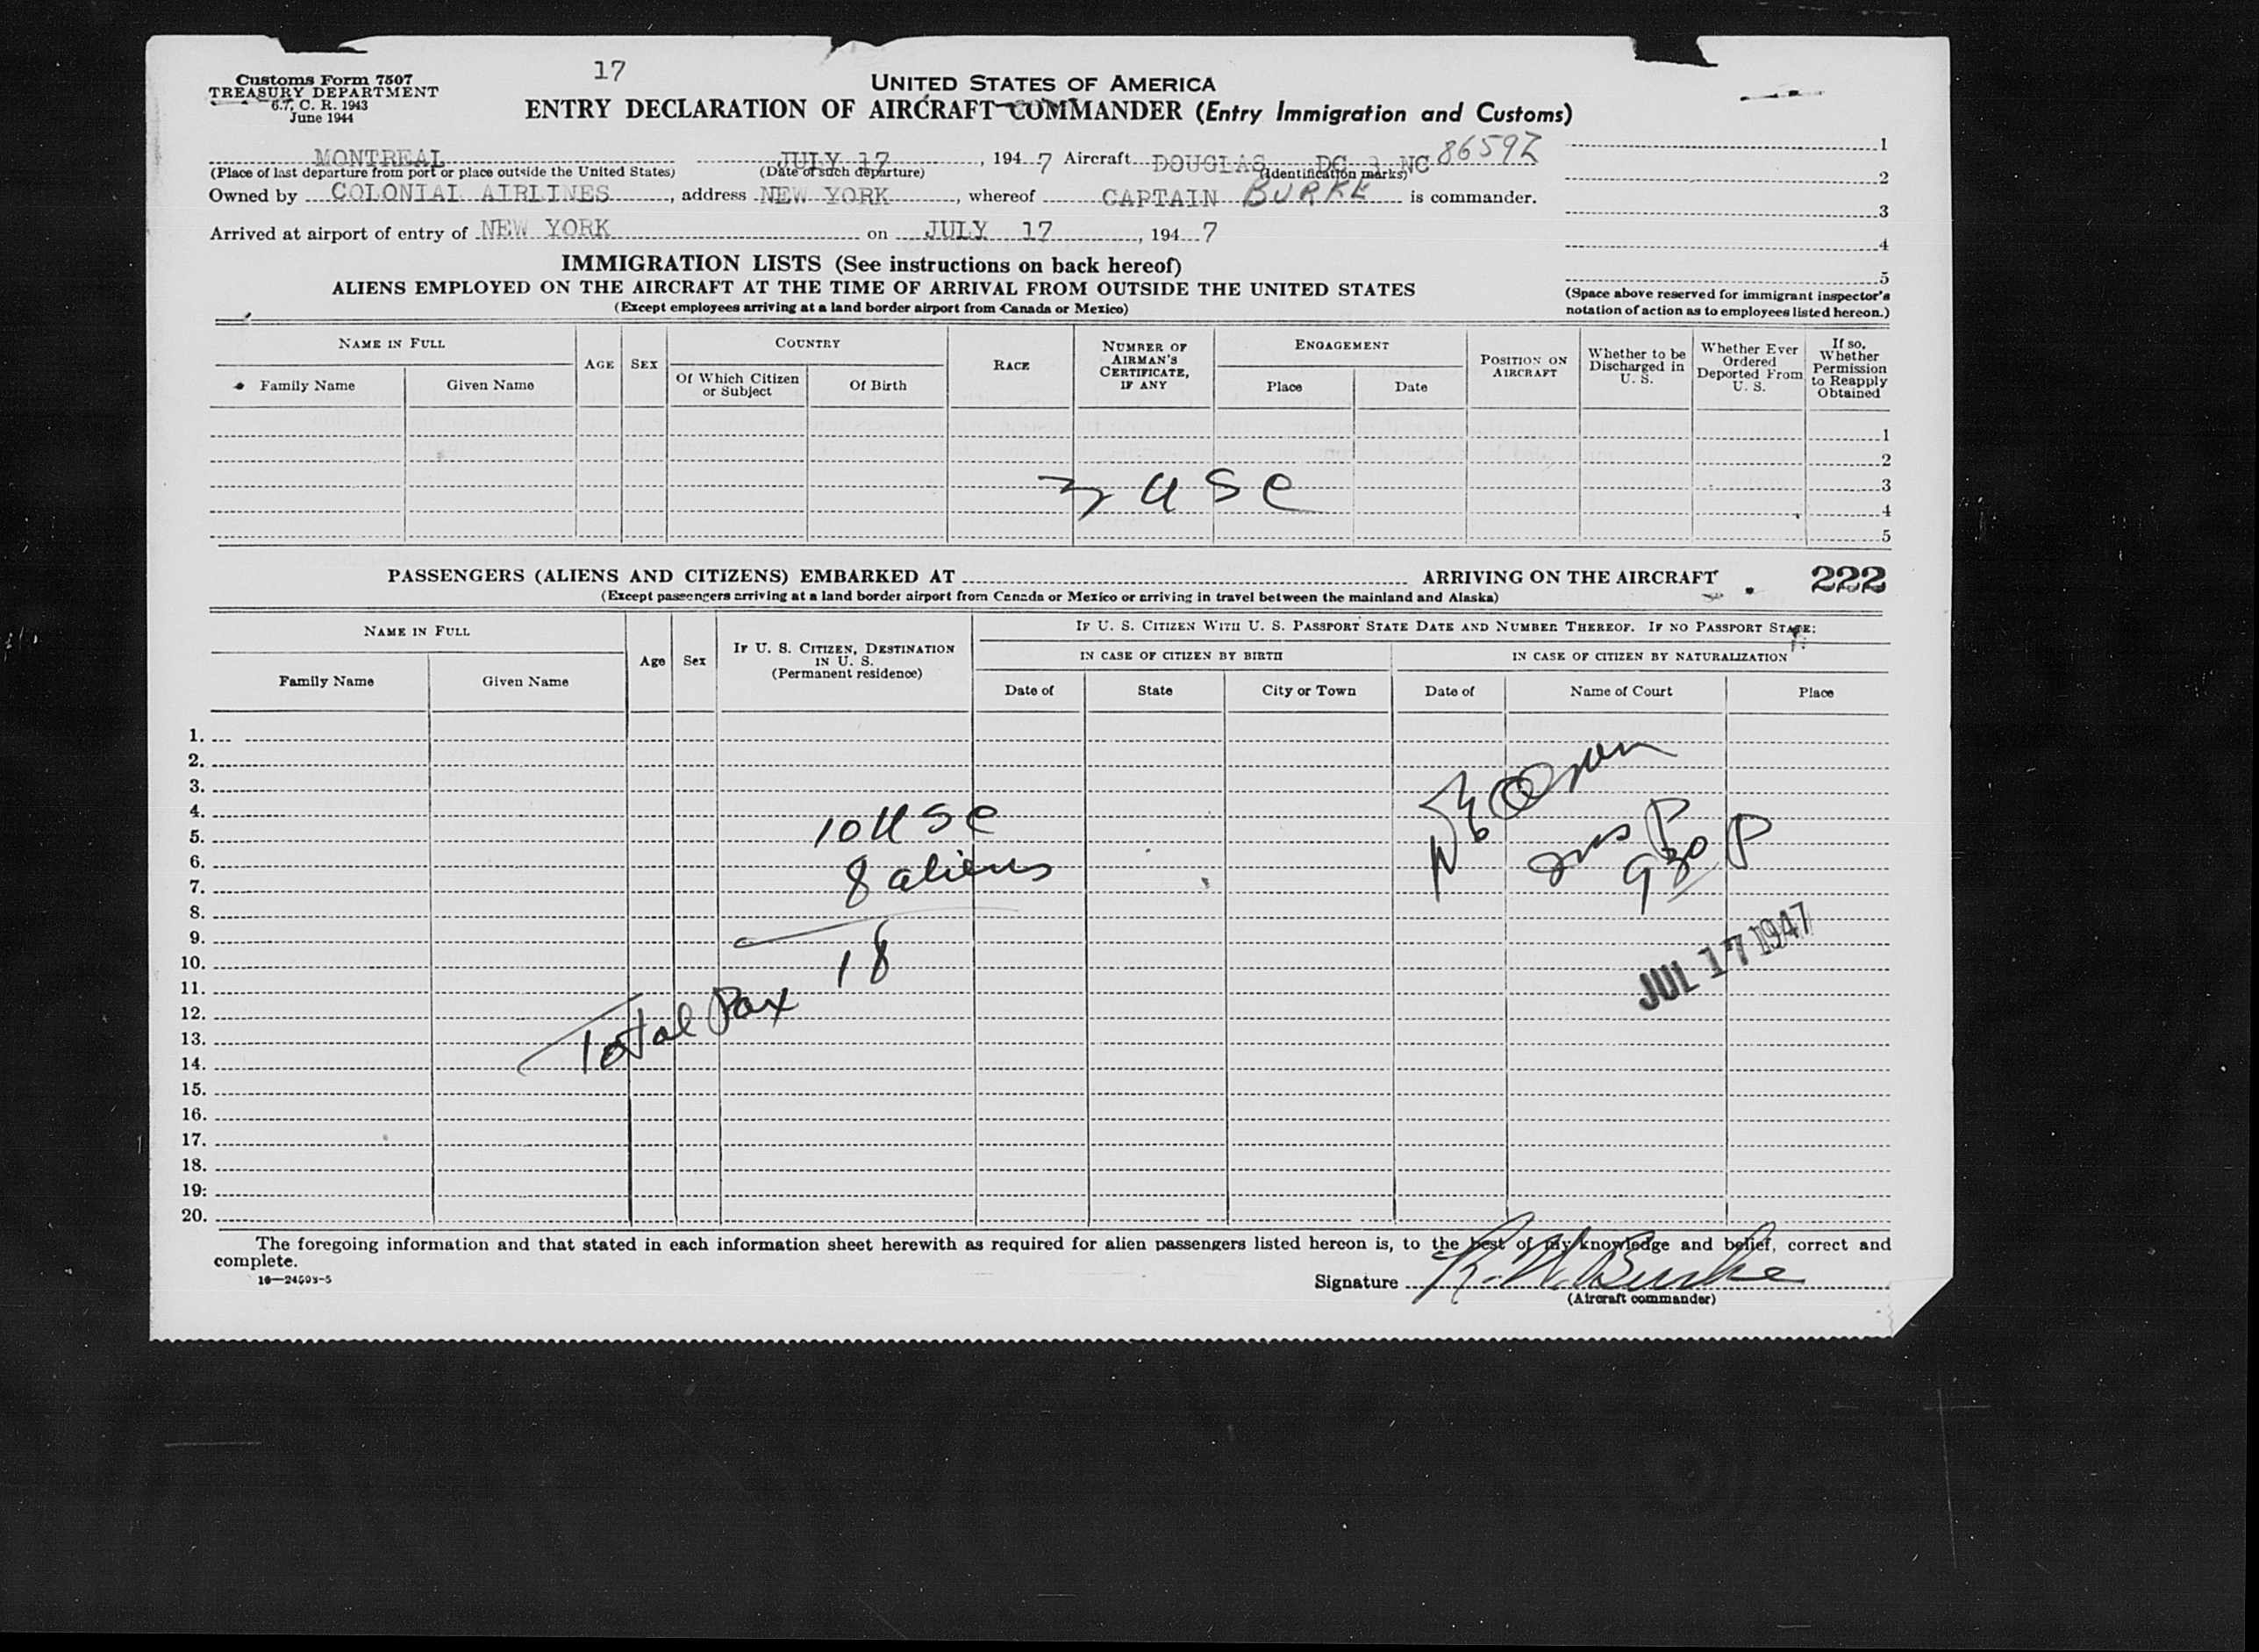 Customs Form 7507
TREASURY DEPARTMENT
6.7, C. R. 1943
June 1944
17
UNITED STATES OF AMERICA
ENTRY DECLARATION OF AIRCRAFT COMMANDER (Entry Immigration and Customs)
MONTREAL JULY 17, 1947 Aircraft DOUGLAS DC 3 NC 86592
(Place of last departure from port or place outside the United States) (Date of such departure) (Identification marks)
Owned by COLONIAL AIRLINES, address NEW YORK, whereof CAPTAIN BURKE is commander.
Arrived at airport of entry of NEW YORK on JULY 17, 1947
1
2
3
4
5
(Space above reserved for immigrant inspector's
notation of action as to employees listed hereon.)
IMMIGRATION LISTS (See instructions on back hereof)
ALIENS EMPLOYED ON THE AIRCRAFT AT THE TIME OF ARRIVAL FROM OUTSIDE THE UNITED STATES
(Except employees arriving at a land border airport from Canada or Mexico)
NAME IN FULL
Family Name
Given Name
AGE
SEX
COUNTRY
Of Which Citizen
or Subject
Of Birth
RACE
NUMBER OF
AIRMAN'S
CERTIFICATE,
IF ANY
ENGAGEMENT
Place
Date
POSITION ON
AIRCRAFT
Whether to be
Discharged in
U. S.
Whether Ever
Ordered
Deported From
U. S.
If so,
Whether
Permission
to Reapply
Obtained
1
2
3
4
5
3 USC
PASSENGERS (ALIENS AND CITIZENS) EMBARKED AT ARRIVING ON THE AIRCRAFT
222
(Except passengers arriving at a land border airport from Canada or Mexico or arriving in travel between the mainland and Alaska)
NAME IN FULL
Family Name
Given Name
Age
Sex
IF U. S. CITIZEN, DESTINATION
IN U. S.
(Permanent residence)
IF U. S. CITIZEN WITH U. S. PASSPORT STATE DATE AND NUMBER THEREOF. IF NO PASSPORT STATE:
IN CASE OF CITIZEN BY BIRTH
IN CASE OF CITIZEN BY NATURALIZATION
Date of
State
City or Town
Date of
Name of Court
Place
1.
2.
3.
4.
5.
6.
7.
8.
9.
10.
11.
12.
13.
14.
15.
16.
17.
18.
19.
20.
10 USC
8 aliens
18
Total Pax
930 P
JUL 17 1947
The foregoing information and that stated in each information sheet herewith as required for alien passengers listed hereon is, to the best of my knowledge and belief, correct and
complete.
16—24593-5
Signature R. W. Burke
(Aircraft commander)